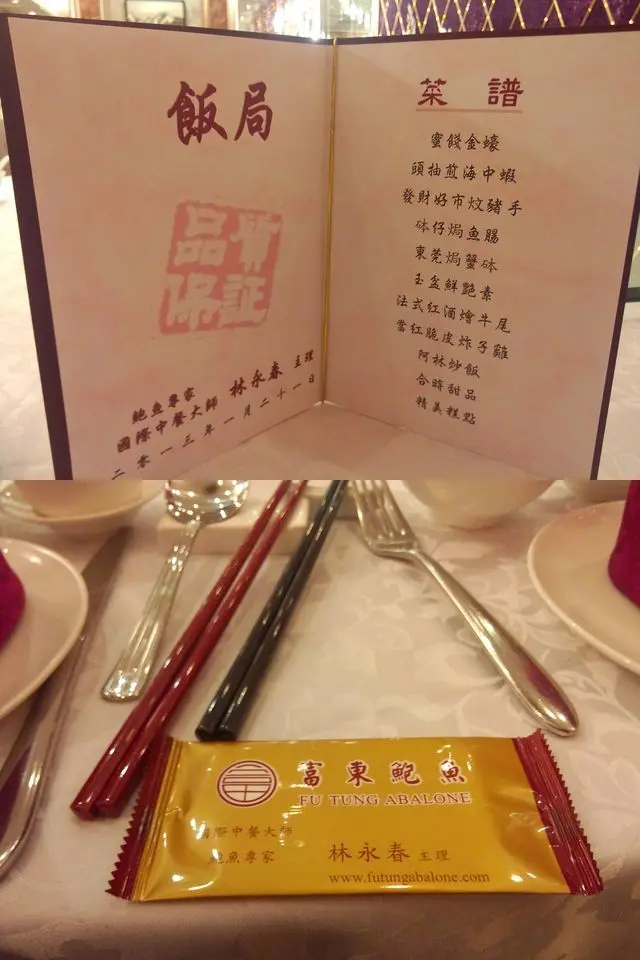 飯局
品質
保証
鮑魚專家
國際中餐大師 林永春 主理
二零一三年一月二十一日
菜 譜
蜜餞金蠔
頭抽煎海中蝦
發財好市炆豬手
砵仔焗魚腸
東莞焗蟹砵
玉盆鮮艷素
法式紅酒燴牛尾
當紅脆皮炸子雞
阿林炒飯
合時甜品
精美糕點
富東鮑魚
FU TUNG ABALONE
國際中餐大師
鮑魚專家 林永春 主理
www.futungabalone.com